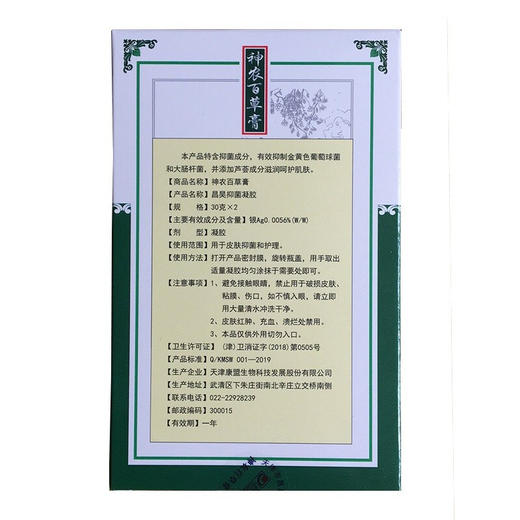 神农百草膏
本产品特含抑菌成分，有效抑制金黄色葡萄球菌
和大肠杆菌，并添加芦荟成分滋润呵护肌肤。
【商品名称】神农百草膏
【产品名称】昌昊抑菌凝胶
【规　　格】30克×2
【主要有效成分及含量】银Ag0.0056%(W/W)
【剂　　型】凝胶
【使用范围】用于皮肤抑菌和护理。
【使用方法】打开产品密封膜，旋转瓶盖，用手取出
适量凝胶均匀涂抹于需要处即可。
【注意事项】1、避免接触眼睛，禁止用于破损皮肤、
粘膜、伤口，如不慎入眼，请立即
用大量清水冲洗干净。
2、皮肤红肿、充血、溃烂处禁用。
3、本品仅供外用切勿入口。
【卫生许可证】（津）卫消证字(2018)第0505号
【产品标准】Q/KMSW 001—2019
【生产企业】天津康盟生物科技发展股份有限公司
【生产地址】武清区下朱庄街南北辛庄立交桥南侧
【联系电话】022-22928239
【邮政编码】300015
【有效期】一年